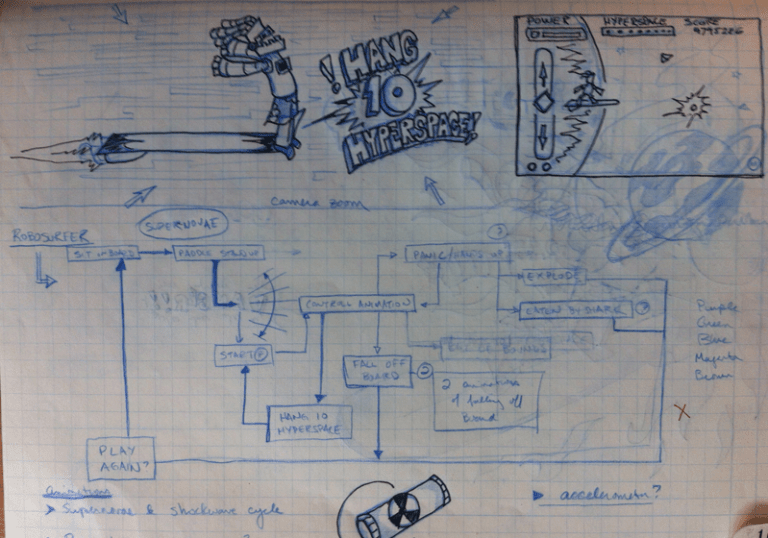 ! HANG
10
HYPERSPACE!
POWER
HYPERSPACE
SCORE
9795226
Camera Boom
ROBOSURFER
SUPERNOVAE
SIT ON BOARD
PADDLE STAND UP
PANIC/HANDS UP
EXPLODE
CONTROL ANIMATION
EATEN BY SHARK
START
FALL OFF
BOARD
2
2 animations
of falling off
Board
HANG 10
HYPERSPACE
PLAY
AGAIN?
Purple
Green
Blue
Magenta
Brown
X
animations
Supernovae & shockwave cycle
accelerometer?